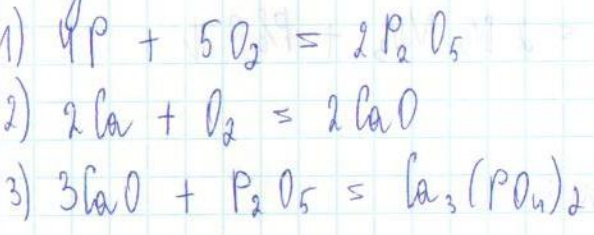 1) 4P + 5O₂ = 2P₂O₅
2) 2Ca + O₂ = 2CaO
3) 3CaO + P₂O₅ = Ca₃(PO₄)₂